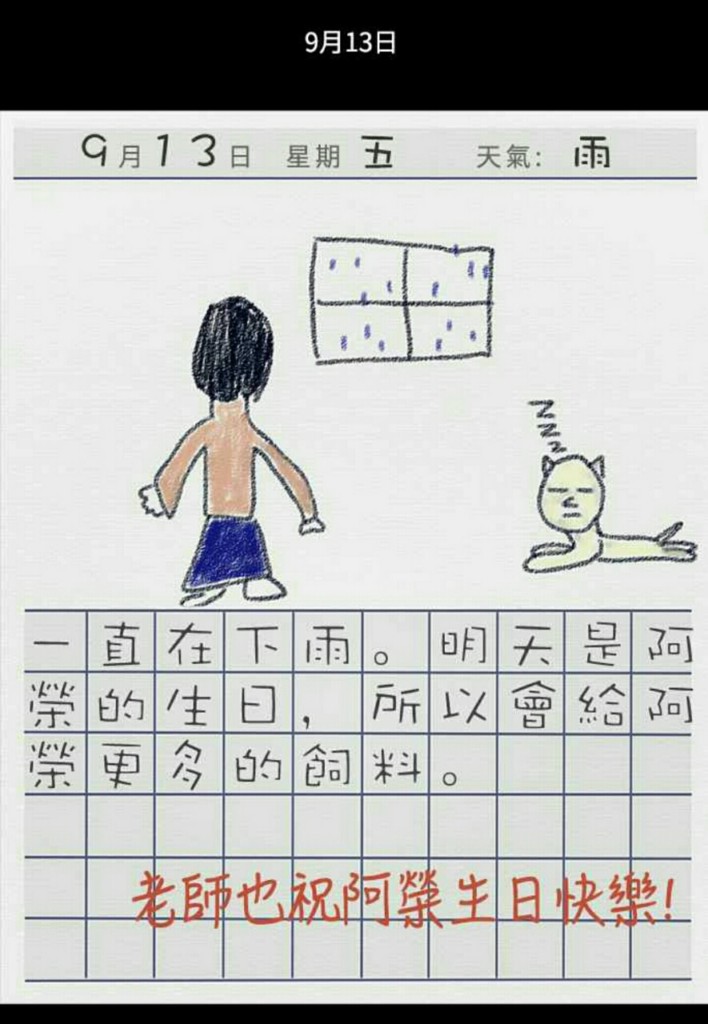 9月13日
9月13日 星期五 天氣: 雨
一直在下雨。明天是阿
榮的生日，所以會給阿
榮更多的飼料。
老師也祝阿榮生日快樂!
z
z
z